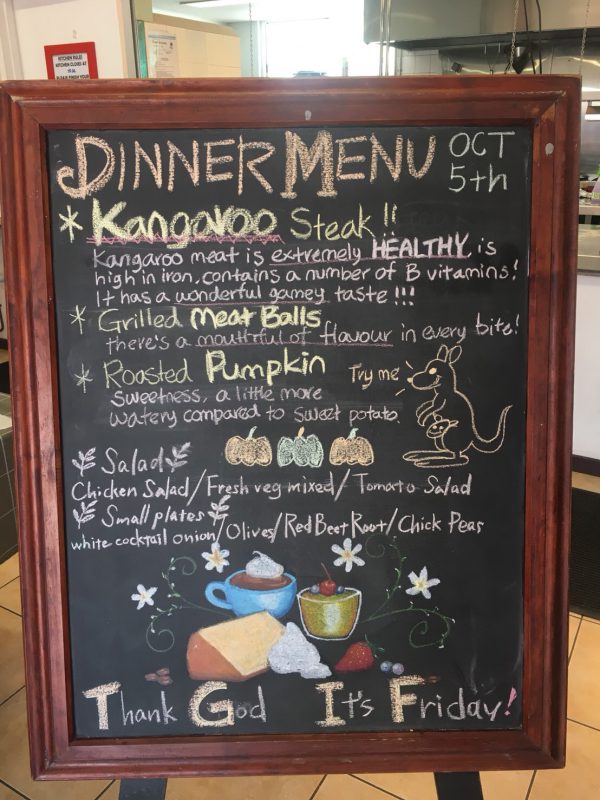 KITCHEN RULE!
KITCHEN CLOSES AT
DINNER MENU OCT 5th
* Kangaroo Steak !!
Kangaroo meat is extremely HEALTHY, is
high in iron, contains a number of B vitamins!
It has a wonderful gamey taste !!!
* Grilled Meat Balls
there's a mouthful of flavour in every bite!
* Roasted Pumpkin
Sweetness, a little more
watery compared to sweet potato.
Try me
Salad
Chicken Salad/Fresh veg mixed/Tomato Salad
Small plates
white cocktail onion/Olives/Red Beet Root/Chick Peas
Thank God It's Friday!